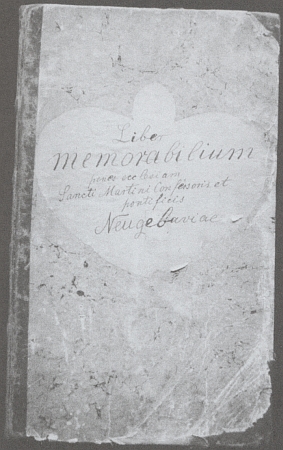 Liber
memorabilium
penes ecclesiam
Sancti Martini Confessoris et
pontificis
Neugebaviae